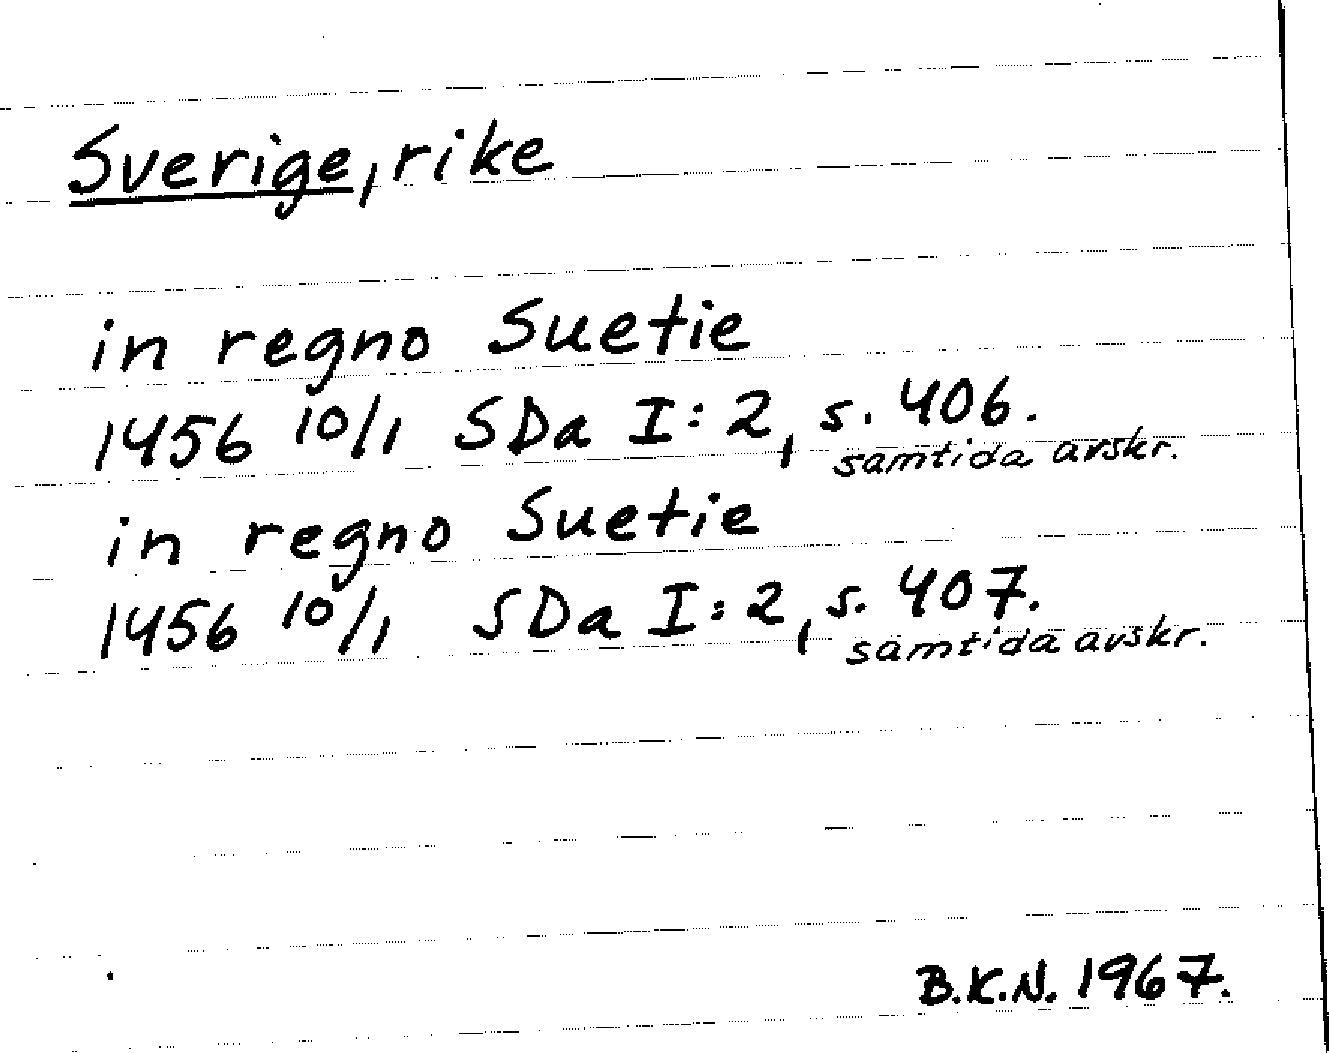 Sverige, rike
in regno Suetie
1456 10/1 SDa I:2, s. 406.
samtida avskr.
in regno Suetie
1456 10/1 SDa I:2, s. 407.
samtida avskr.
B.K.N. 1967.